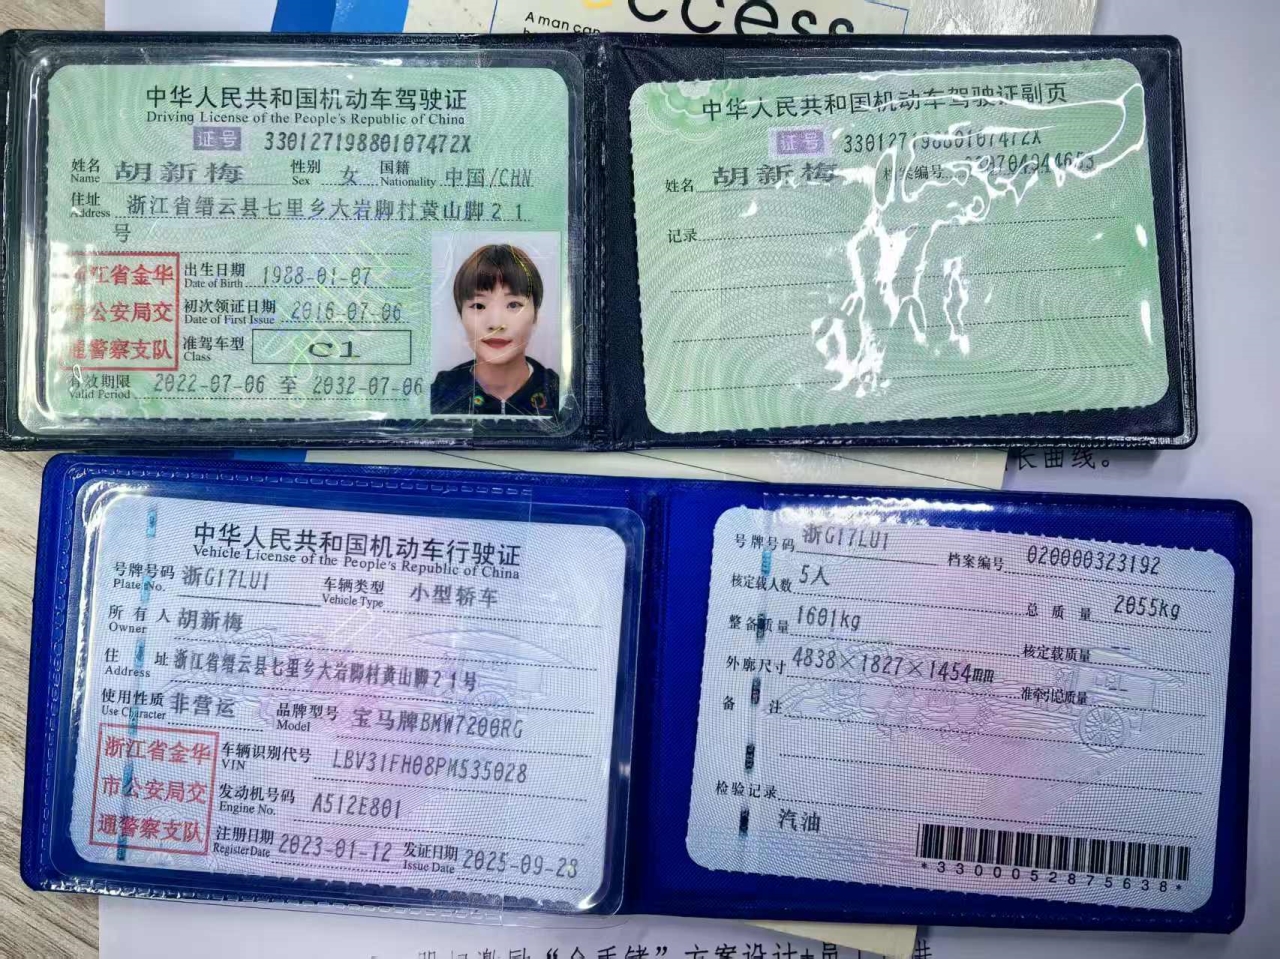 ccess
A man can
中华人民共和国机动车驾驶证
Driving License of the People's Republic of China
证号 33012719880107472X
姓名 胡新梅 性别 女 国籍 中国/CHN
Name Sex Nationality
住址 浙江省缙云县七里乡大岩脚村黄山脚21
Address
号
浙江省金华
市公安局交
通警察支队
出生日期 1988-01-07
Date of Birth
初次领证日期 2016-07-06
Date of First Issue
准驾车型 C1
Class
有效期限 2022-07-06 至 2032-07-06
Valid Period
中华人民共和国机动车驾驶证副页
证号 33012719880107472X
姓名 胡新梅 档案编号
记录
长曲线。
中华人民共和国机动车行驶证
Vehicle License of the People's Republic of China
号牌号码 浙G17LU1 车辆类型 小型轿车
Plate No. Vehicle Type
所有人 胡新梅
Owner
住址 浙江省缙云县七里乡大岩脚村黄山脚21号
Address
使用性质 非营运 品牌型号 宝马牌BMW7200RG
Use Character Model
浙江省金华
市公安局交
通警察支队
车辆识别代号 LBV31FH08PM535028
VIN
发动机号码 A512E801
Engine No.
注册日期 2023-01-12 发证日期 2025-09-23
Register Date Issue Date
号牌号码 浙G17LU1 档案编号 020000323192
核定载人数 5人 总质量 2055kg
整备质量 1601kg 核定载质量 --
外廓尺寸 4838×1827×1454mm 准牵引总质量 --
备注
检验记录
汽油
*3300052875638*